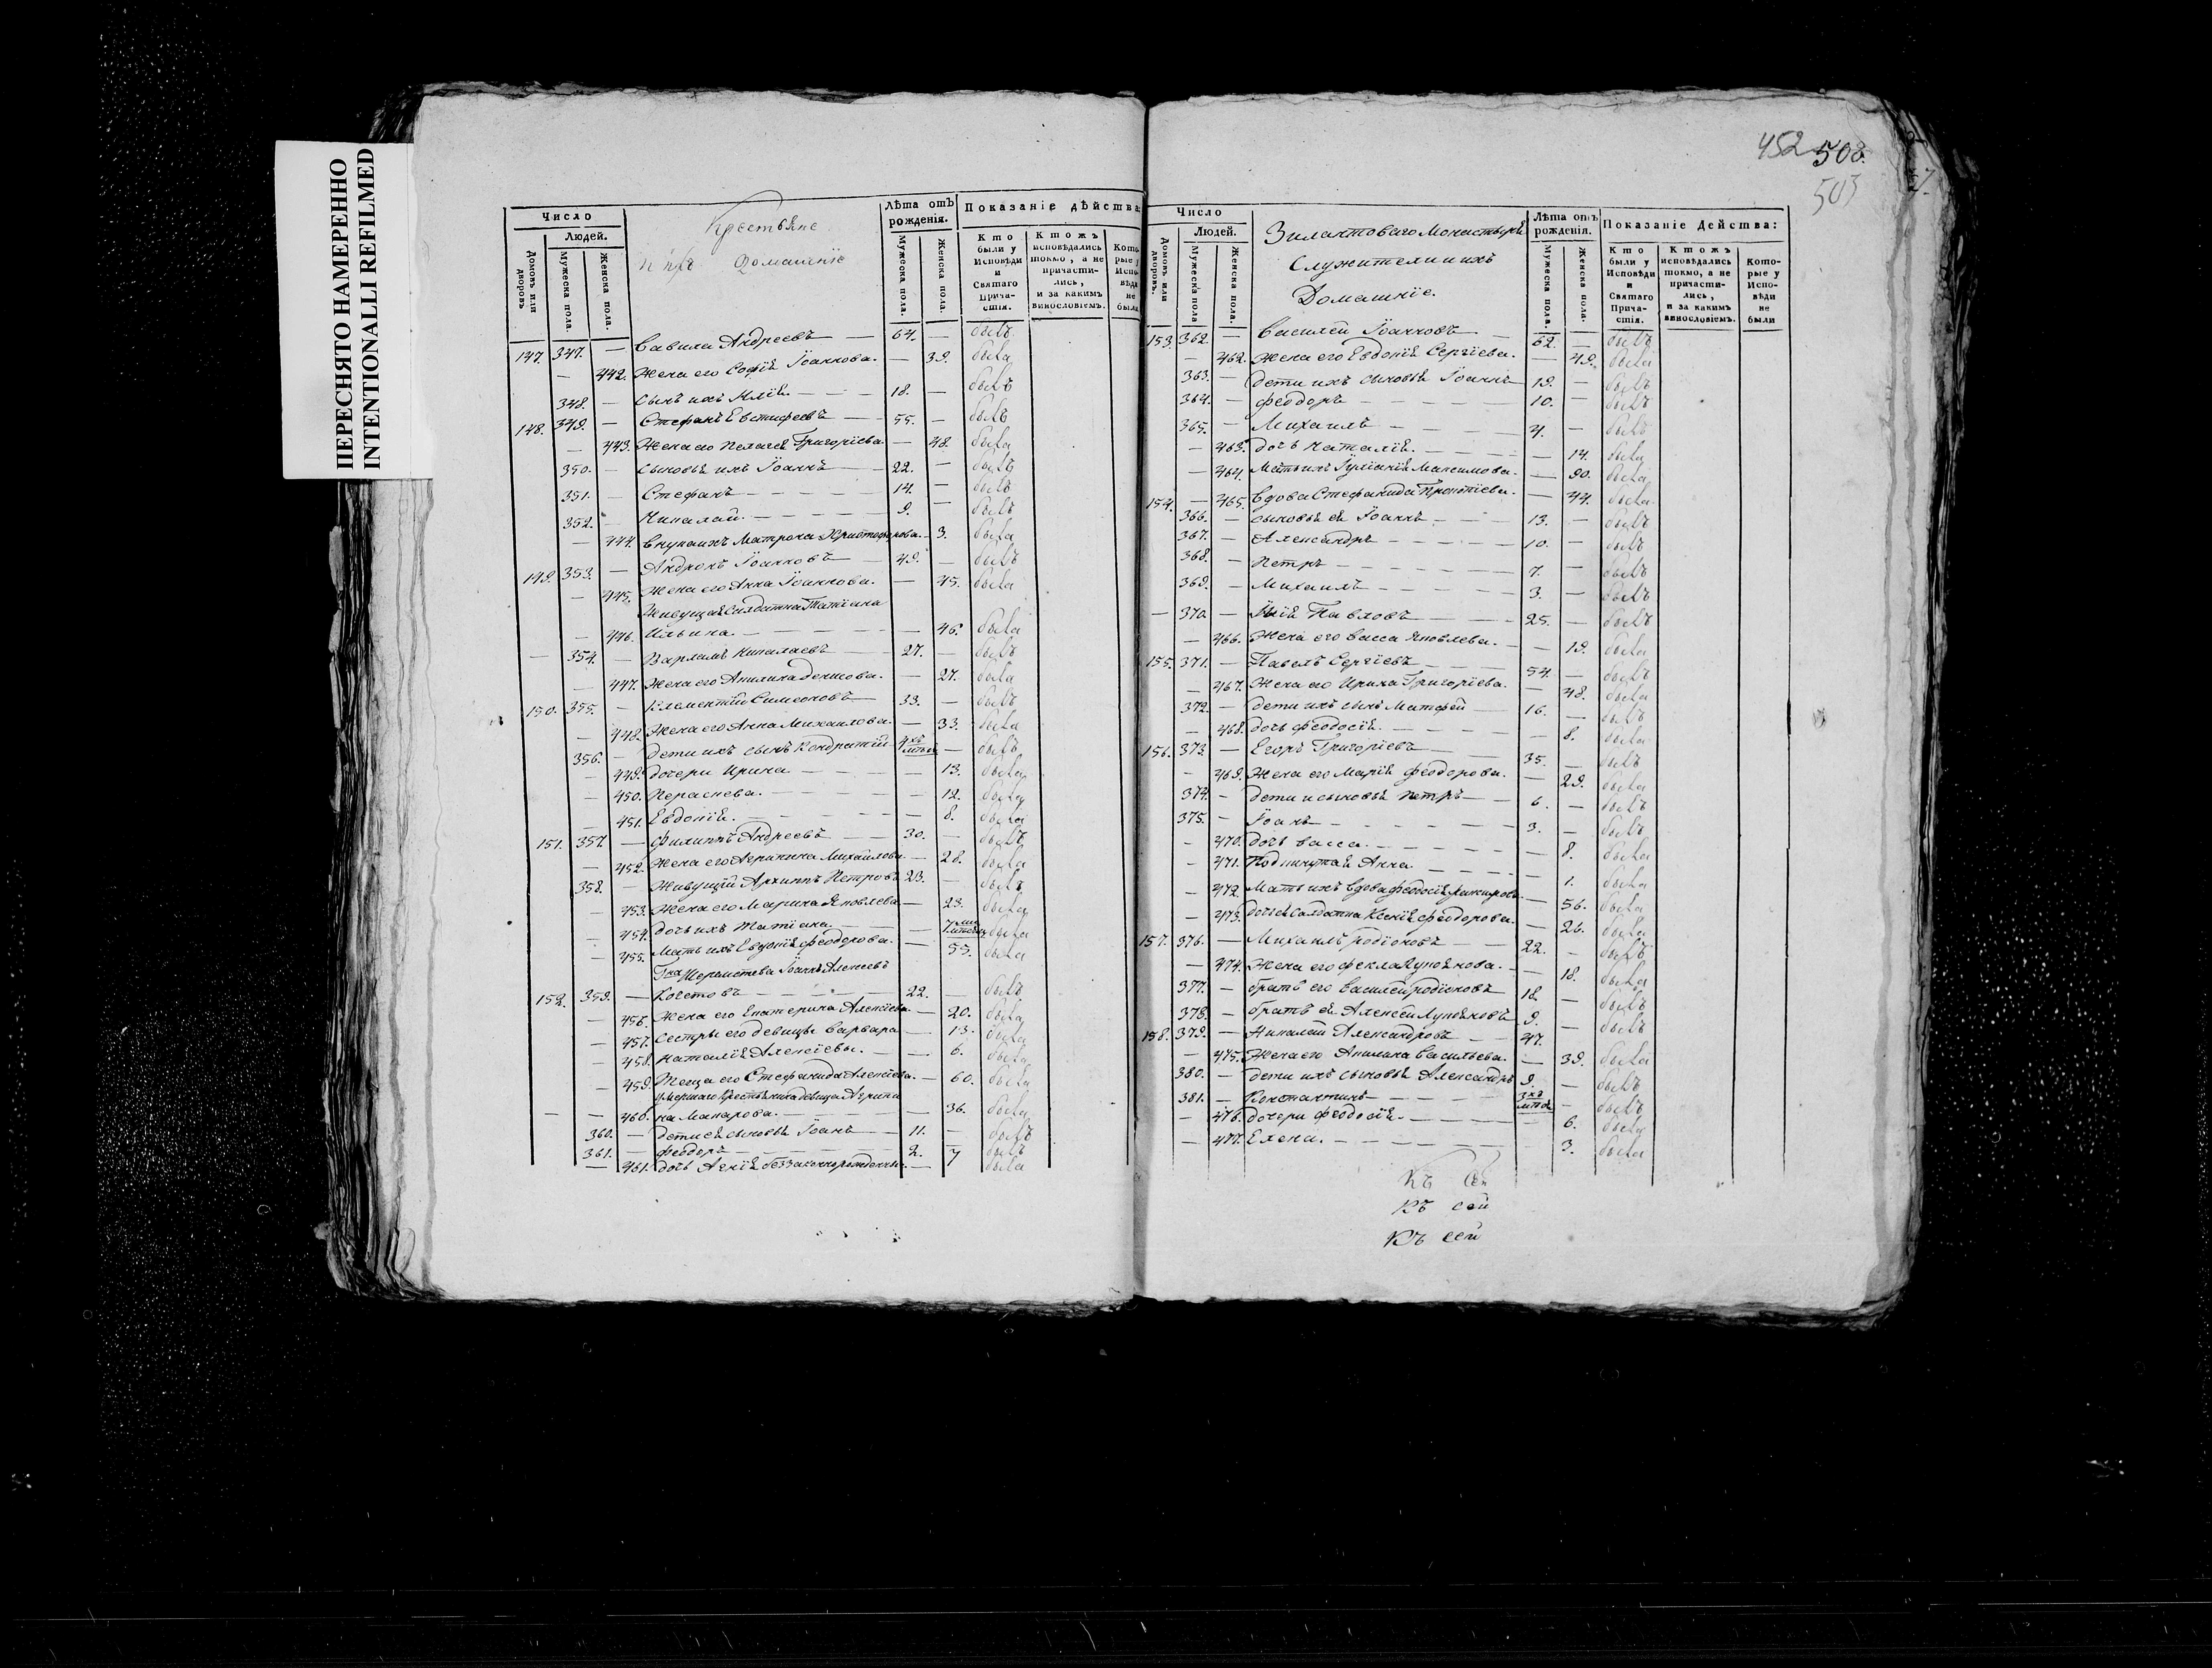 ПЕРЕСНЯТО НАМЕРЕННО
INTENTIONALLI REFILMED
452 508.
503
Число
Людей.
Домовъ или дворовъ
Мужеска пола.
Женска пола.
Крестьяне
и ихъ Домашніе
Лѣта отъ рожденія.
Мужеска пола.
Женска пола.
Показаніе дѣйства
Кто были у Исповѣди и Святаго Прича-стія.
Ктожъ исповѣдались токмо, а не причасти-лись, и за какимъ винословіемъ.
Кото рые у Испо- вѣди не были
147. 347. — Вавила Андреевъ — 64. — былъ
— 442. Жена его Софія Іоаннова. — 39. была
348. — Сынъ ихъ Илія. — 18. — былъ
148. 349. — Стефанъ Евстифеевъ — 55. — былъ
— 443. Жена его Пелагея Григоріева — 48. была
350. — Сыновья ихъ Іоаннъ — 22. — былъ
351. — Стефанъ — 14. — былъ
352. — Николай. — 9. — былъ
— 444. Внука ихъ Матрона Христофорова. — 3. была
149. 353. — Андронъ Іоанновъ — 49. — былъ
— 445. Жена его Анна Іоаннова. — 45. была
Живущая Салдатка Татіана
— 446. Ильина. — 46. была
— 354. — Варламъ Николаевъ — 27. — былъ
— 447. Жена его Акилина Денисова. — 27. была
150. 355. — Климентій Симеоновъ — 33. — былъ
— 448. Жена его Анна Михаилова. — 33. была
356. — Дети ихъ сынъ Кондратій 4хъ мѣсяц — былъ
— 449. Дочери Ирина — 13. была
— 450. Параскева. — 12. была
— 451. Евдокія. — 8. была
151. 357. — Филиппъ Андреевъ — 30. — былъ
— 452. Жена его Агрипина Михайлова — 28. была
358. — Живущій Архиппъ Петровъ 23. — былъ
— 453. Жена его Марина Яковлева — 23. была
— 454. Дочь ихъ Татіана. — 7ми мѣсяц была
— 455. Мать ихъ Евдокія Феодорова. — 55. была
Гна Шереметева Іоаннъ Алексеевъ
152. 359. — — 22. — былъ
— 456. Жена его Екатерина Алексіева — 20. была
— 457. Сестры его девицы Варвара — 13. была
— 458. Наталія Алексіевы. — 6. была
— 459. Теща его Стефанида Алексіева. — 60. была
Умершаго Крестьянина девица Агрипи
— — 460. на Макарова. — 36. была
360. — Дети ея сыновья Іоанъ — 11. — былъ
361. — Феодоръ — 2. былъ
— 461. Дочь беззаконнорожденныя — 7 была
Число
Людей.
Домовъ или дворовъ.
Мужеска пола
Женска пола.
Зилантоваго Монастыря
Служители и ихъ
Домашніе.
Лѣта отъ рожденія.
Мужеска пола.
Женска пола.
Показаніе Действа:
Кто были у Исповѣди и Святаго Прича-стія.
Ктожъ исповѣдались токмо, а не причасти-лись, и за какимъ винословіемъ.
Кото-рые у Испо-вѣди не были
153. 362. — Василей Іоанновъ — 62. — былъ
— 462. Жена его Евдокія Сергіева. — 49. была
363. — Дети ихъ сыновья Іоаннъ 19. — былъ
364. — Феодоръ — 10. — былъ
365. — Михаилъ — 4. — былъ
— 463. Дочь Наталія. — 14. была
— 464. Мать ихъ Гуліанія Максимова. — 90. была
154. — 465. Вдова Стефанида Прокопіева. — 44. была
366. — Сыновья ея Іоаннъ — 13. — былъ
367. — Александръ — 10. — былъ
368. — Петръ — 7. — былъ
369. — Михаилъ — 3. — былъ
— 370. — Илія Павловъ — 25. — былъ
— 466. Жена его Васса Яковлева. — 19. была
155. 371. — Павелъ Сергіевъ — 54. — былъ
— 467. Жена его Ирина Григоріева. — 48. была
372. — Дети ихъ сынъ Матфей — 16. — былъ
— 468. Дочь Феодосія. — 8. была
156. 373. — Егоръ Григоріевъ — 35. — былъ
— 469. Жена его Марія Феодорова. — 29. была
374. — Дети и сыновья Петръ — 6. — былъ
375. — Іоанъ — 3. — былъ
— 470. Дочь Васса. — 8. была
— 471. Подкинутая Анна — 1. была
— 472. Мать ихъ вдова Феодосія — 56. была
— 473. Дочь ея Салдатка Ксенія Феодорова. — 26. была
157. 376. — Михаилъ Родіоновъ — 22. — былъ
— 474. Жена его Фекла Лукоянова. — 18. была
377. — Братъ его Василей Родіоновъ 18. — былъ
378. — Братъ ея Алексей Лукояновъ 9. — былъ
158. 379. — Николай Александровъ — 47.
— 475. Жена его Акилина Васильева. — 39. была
380. — Дети ихъ сыновья Александръ 9. — былъ
381. — Константинъ — 3хъ мѣсяц — былъ
— 476. Дочери Феодосія. — 6. была
— 477. Елена. — 3. была
Къ сей
Къ сей
Къ сей